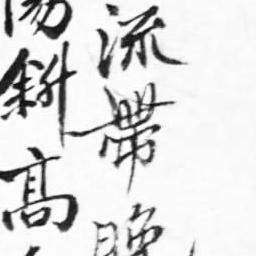 流帶晚
陽斜高